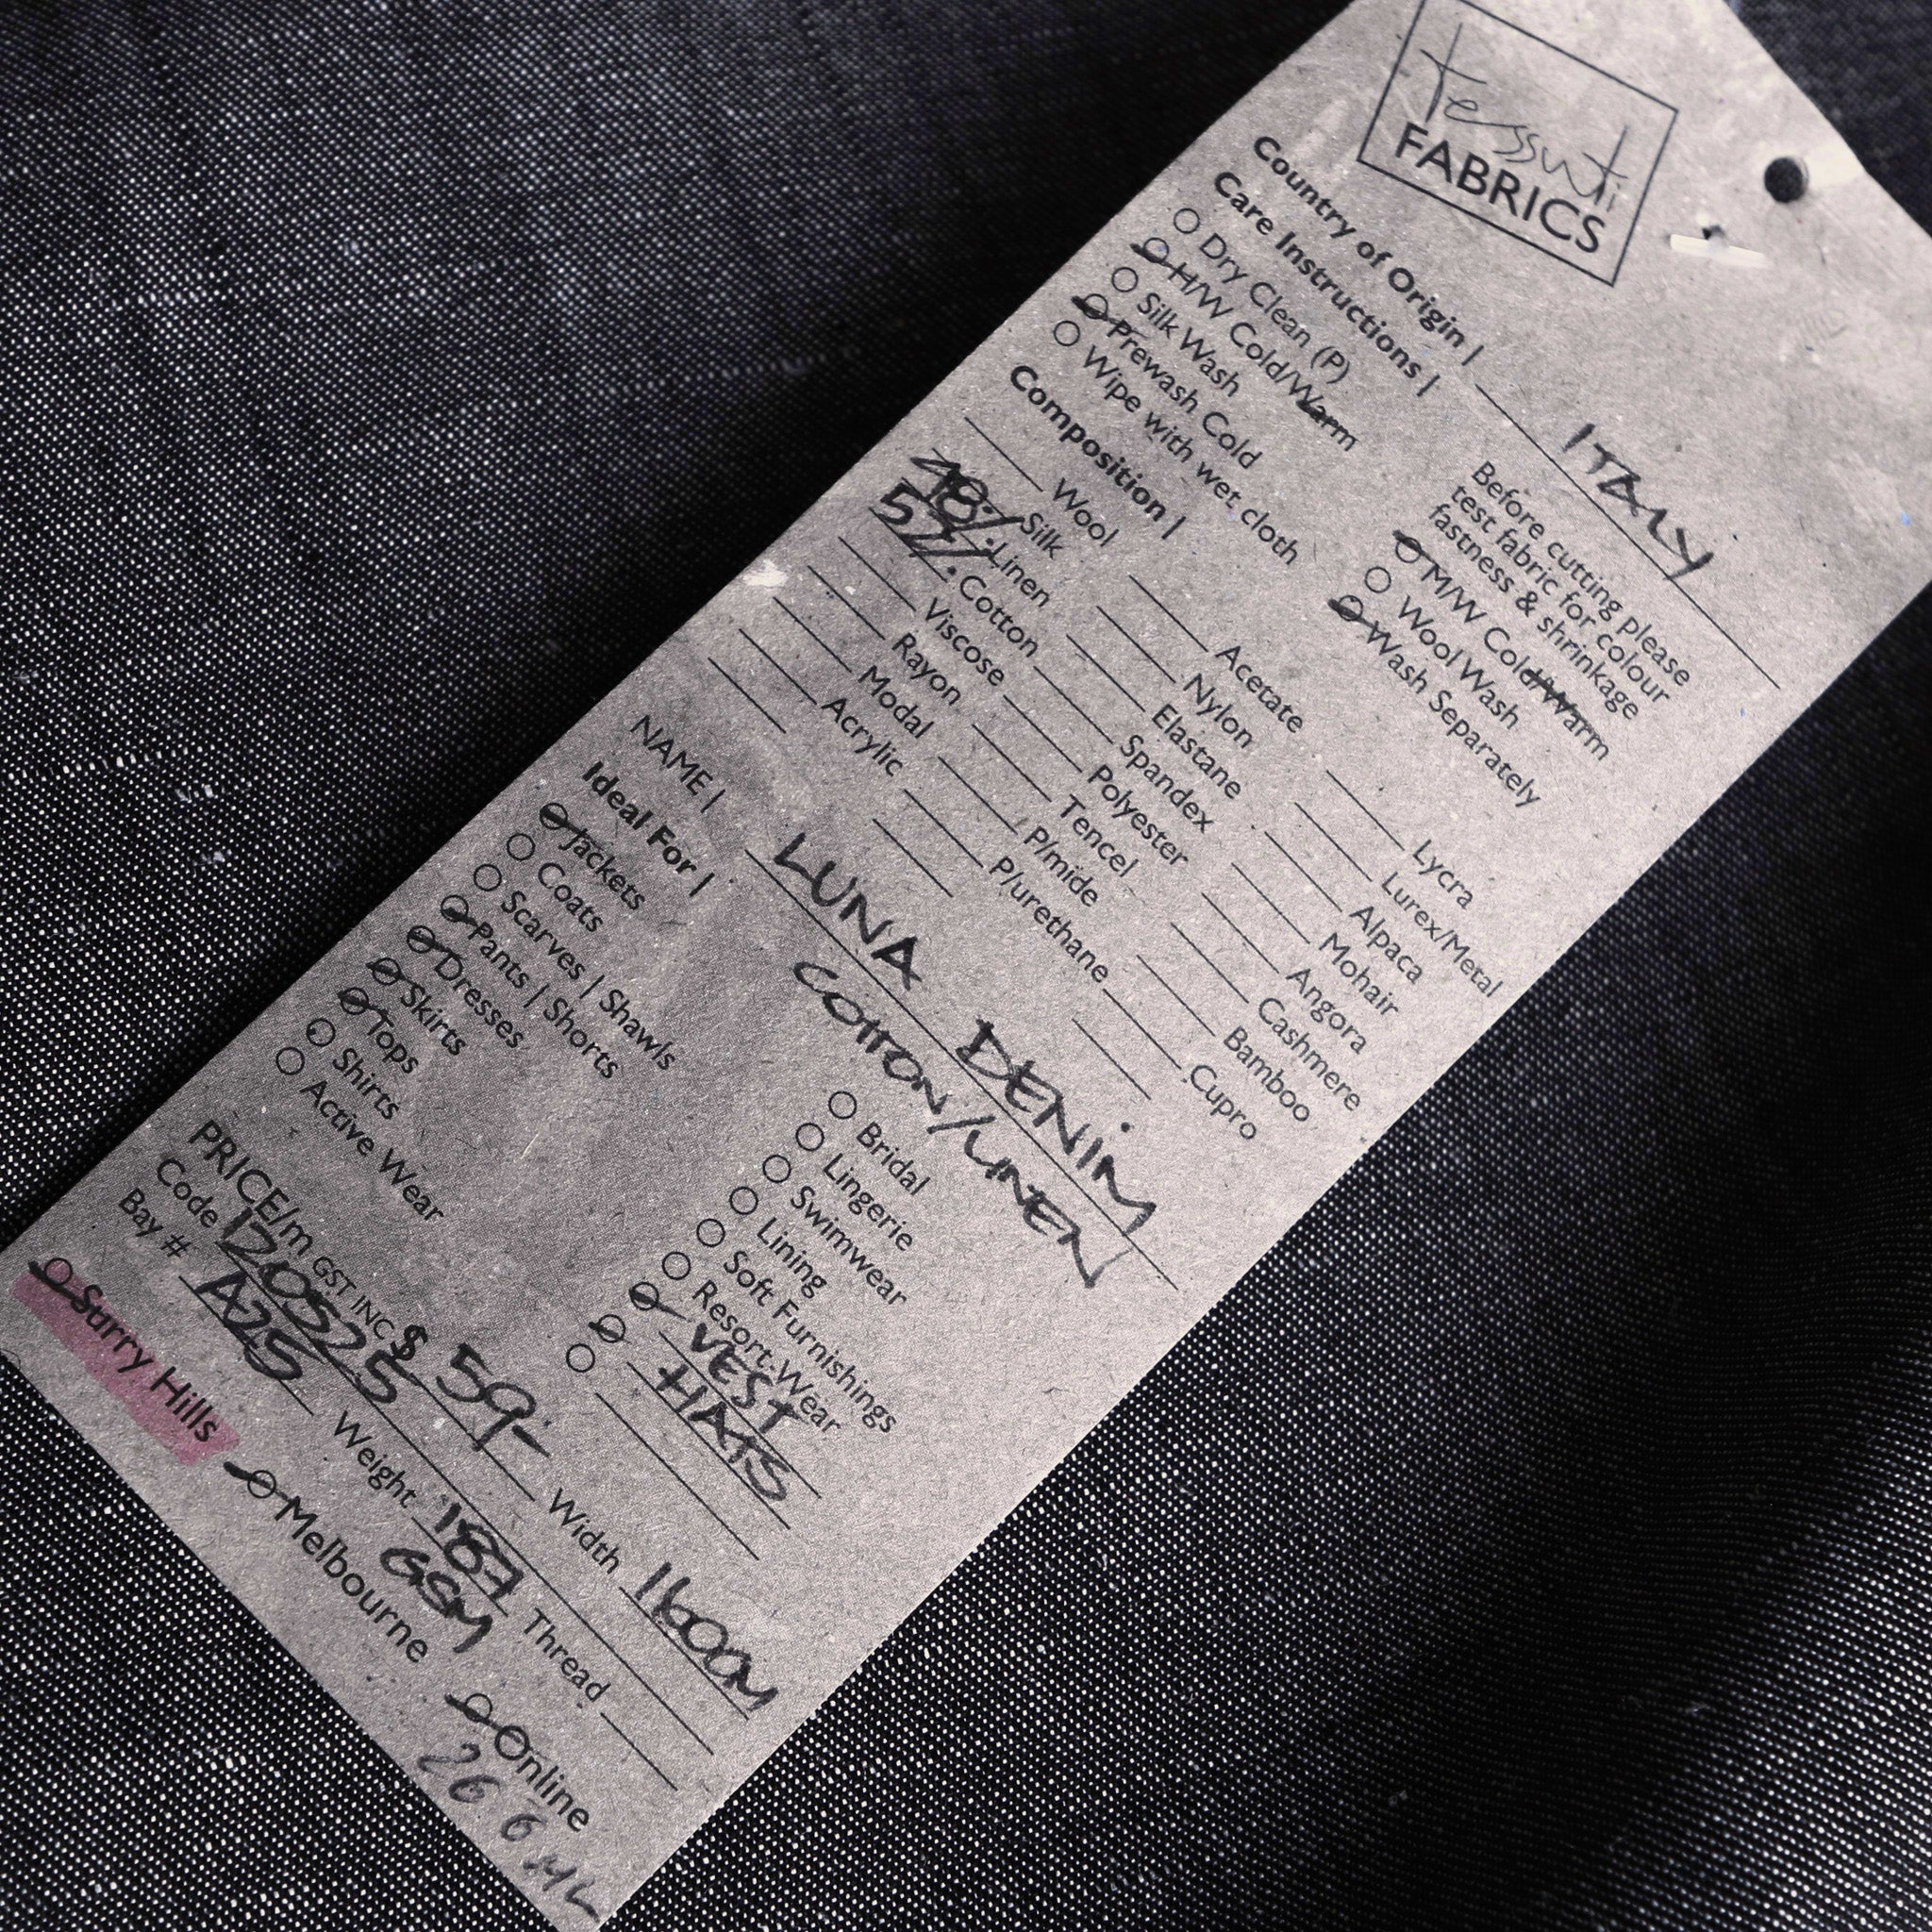 tessuti
FABRICS
Country of Origin | ITALY
Care Instructions |
Before cutting please
test fabric for colour
fastness & shrinkage
Dry Clean (P)
H/W Cold/Warm
Silk Wash
Prewash Cold
Wipe with wet cloth
M/W Cold/Warm
Wool Wash
Wash Separately
Composition |
Wool
Silk
48% Linen
52% Cotton
Viscose
Rayon
Modal
Acrylic
Acetate
Nylon
Elastane
Spandex
Polyester
Tencel
P/mide
P/urethane
Lycra
Lurex/Metal
Alpaca
Mohair
Angora
Cashmere
Bamboo
Cupro
NAME | LUNA DENIM
COTTON/LINEN
Ideal For |
Jackets
Coats
Scarves | Shawls
Pants | Shorts
Dresses
Skirts
Tops
Shirts
Active Wear
Bridal
Lingerie
Swimwear
Lining
Soft Furnishings
Resort-Wear
VEST
HATS
PRICE/m GST INC $ 59- Width 160CM
Code 1205325 Thread
Bay # A25 Weight 187 GSM
Surry Hills Melbourne Online
26 6